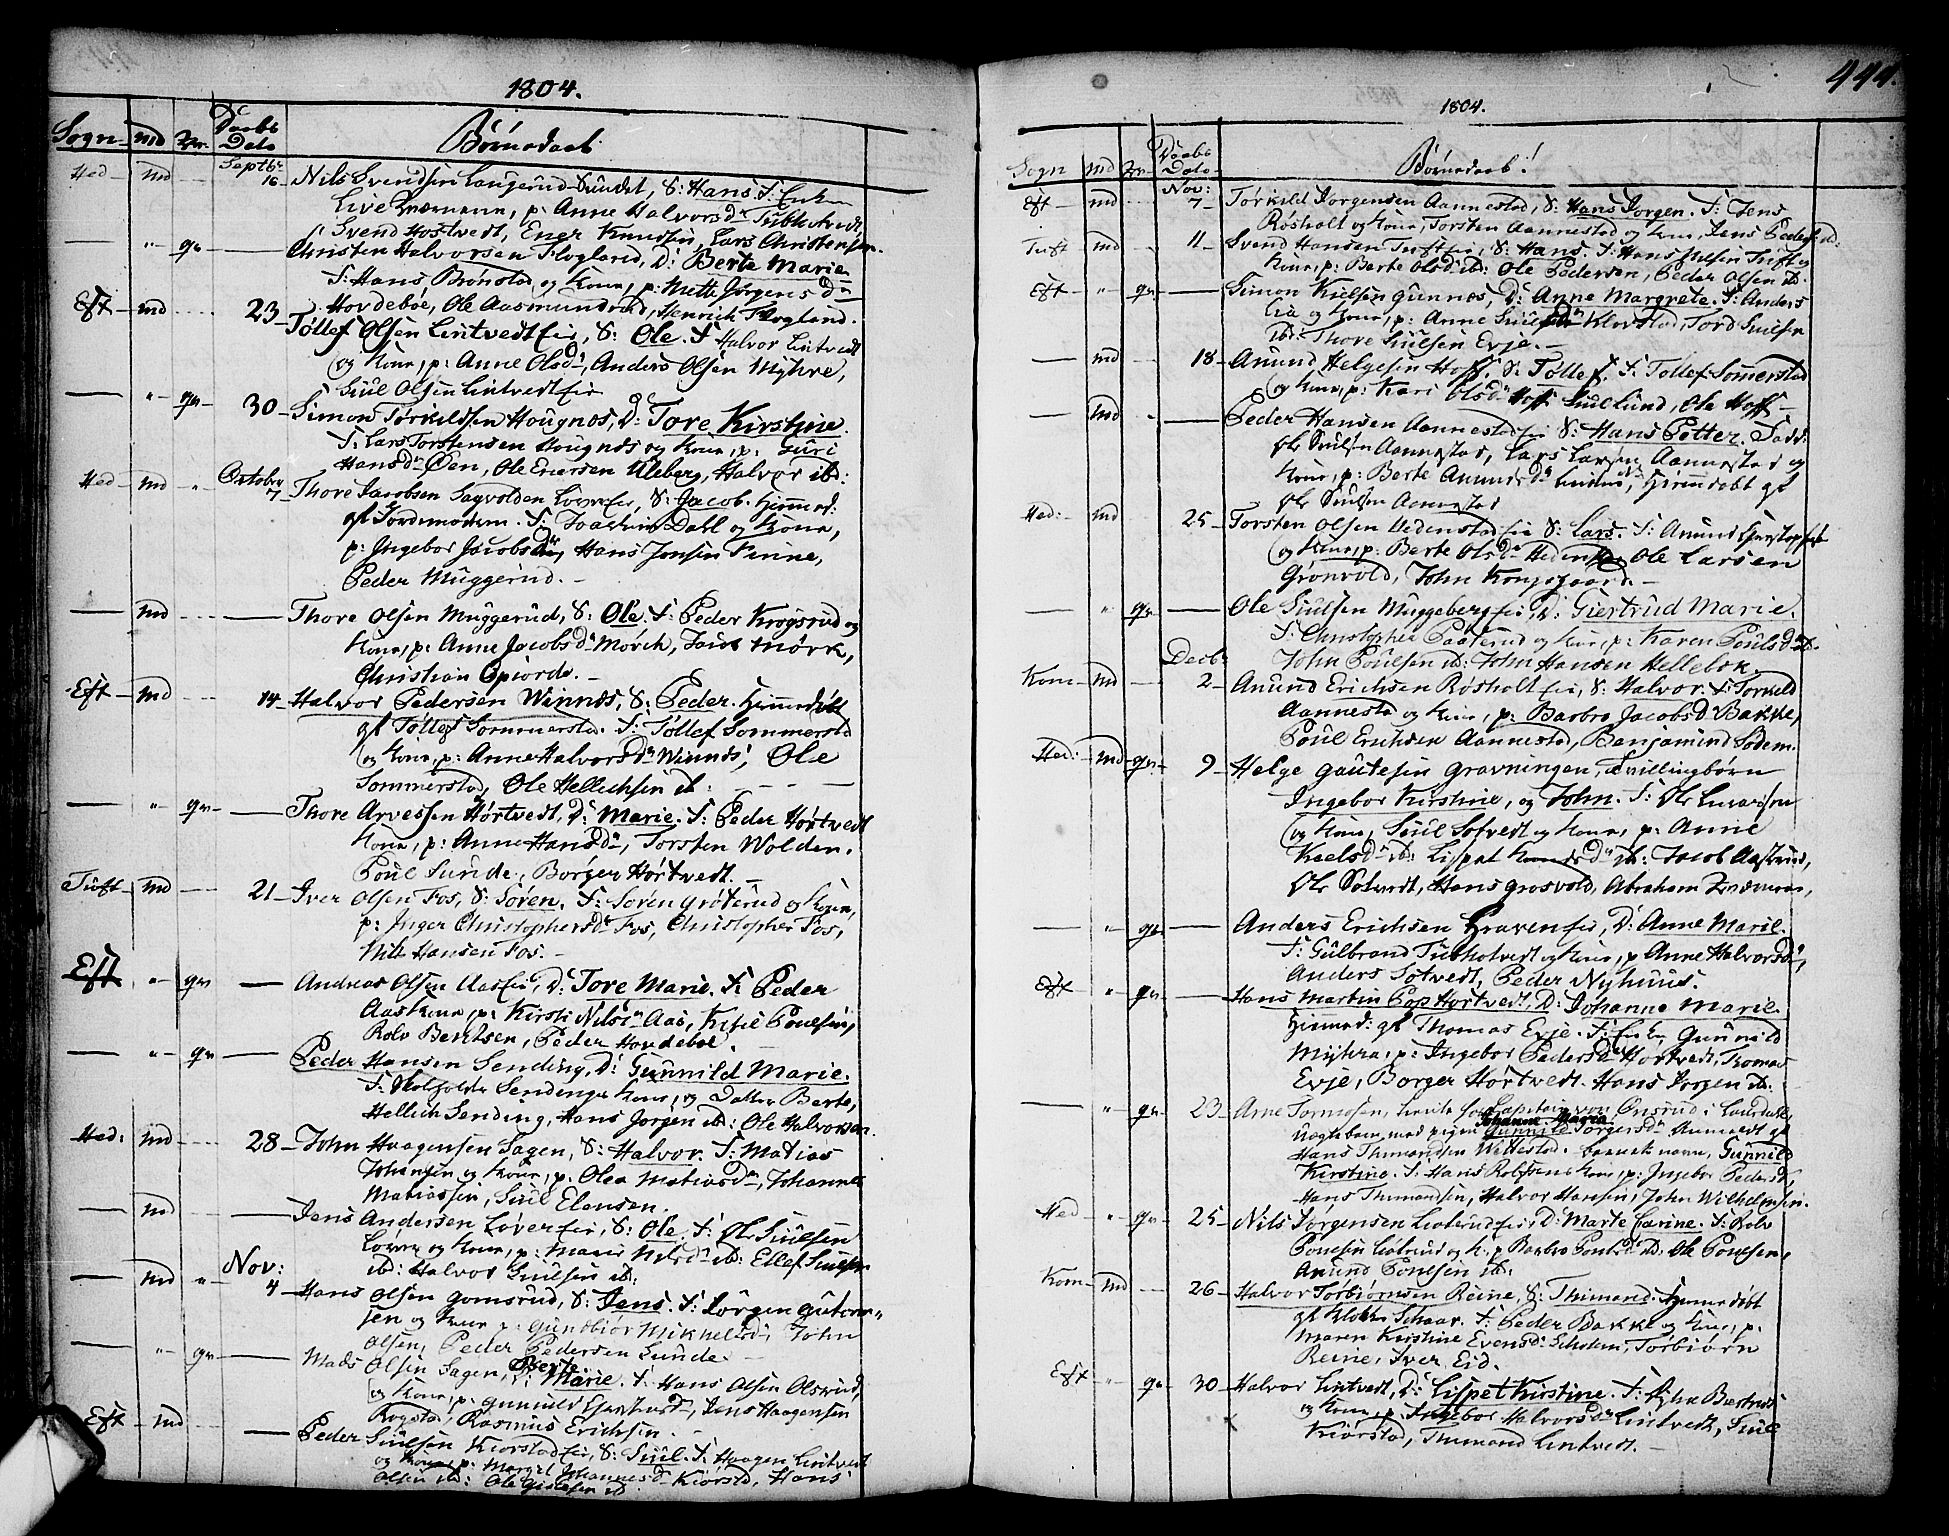 1804.
Sogn md qv. Daabs Dato Børnedaab
Hed md Septbr 16 Nils Svendsen Langerud Sundet, S: Hans F: Enken
Live p: Anne Halvorsd
Svend Hostvedt, Ener Knudsen, Lars Christensen
— " qv — Christen Halvorsen Skogland, D: Berte Marie
F: Hans Brønstad og Kone, p: Mette Jørgensd
Hovdeboe, Ole Aasmundrud, Henrich Skogland.
Eft md 23 Tøllef Olsen Lintvedt ei, S: Ole. F: Halvor Lintvedt
og Kone, p: Anne Olsd, Anders Olsen Myhre,
Siul Olsen Lintvedt ei
— " qv 30 Simon Tørkildsen Hougnæs, D: Tore Kirstine.
F: Lars Torstensen Hougnæs og Kone, p: Guri
Hansd Øen, Ole Enersen Uleberg, Halvor ib:
Hed md " Octobr 7 Thore Jacobsen Sagvolden S: Jacob. Hjemmed:
af Jordemoderen. F: Joachim Dahl og Kone,
p: Ingebor Jacobsd, Hans Jensen Penne,
Peder Muggerud. —
— md — Thore Olsen Muggerud, S: Ole. F: Peder Krogsrud og
Kone, p: Anne Jacobsd Mørch, Mørk,
Christian Gpiorde. —
Eft md 14 Halvor Pedersen Winnæs, S: Peder. Hjemmedøbt
af Tøllef Sommerstad. F: Tøllef Sommerstad
og Kone, p: Anne Halvorsd Winnæs, Ole
Sommerstad, Ole Hellichsen ib:
— " qv — Thore Arvessen Hørtvedt, D: Marie. F: Peder Hørtvedt
Kone, p: Anne Hansd, Torsten Wolden.
Poul Sunde, Borger Hørtvedt. —
Tuft md 21 Iver Olsen Fos, S: Søren. F: Søren Grøterud og Kone,
p: Inger Christophersd Fos, Christopher Fos,
Nils Hansen Fos. —
Eft " qv — Andreas Olsen Aas ei, D: Tore Marie. F: Peder
Aas Kone, p: Kirsti Nilsd Aas, Kittil Poulsen,
Rolv Bentsen, Peder Hovdeboe.
— " qv — Peder Hansen Sending, D: Gunnild Marie.
F: Sending Kone, og Datter Berte,
Hellich Sending, Hans Jørgen ib: Ole Halvorsen.
Hed: md 28 John Haagensen Sagen, S: Halvor. F: Matias
Johansen og Kone, p: Olea Matiasd, Johannes
Matiassen, Siul Elensen.
— md — Jens Andersen Løver ei, S: Ole. F: Ole Siulsen
Løver og Kone, p: Maren Nilsd ib: Ellef Siulsen
ib: Halvor Siulsen ib:
— md " Nov: 4 Hans Olsen Gomsrud, S: Jens. F: Jørgen Gutorm-
sen og Kone p: Gundbiør Mikkelsd, John
Olsen, Peder Pedersen Sunde —
— " qv — Mads Olsen Sagen, D: Berte Marie. F: Hans Olsen Olsrud,
og Kone, p: Gunnild Jens Haagensen
Rogstad, Rasmus Erichsen.
Eft md — Peder Siulsen Kiørstad ei, S: Siul. F: Haagen Lintvedt
og Kone, p: Margit Johannesd Kiørstad, Hans
Olsen ib: Ole Gislesen ib.
444.
1804.
Sogn md qv. Daabs Dato Børnedaab!
Eft md Nov: 7 Tørkild Jørgensen Aannestad, S: Hans Jørgen. F: Jens
Røsholt og Kone, Torsten Aannestad og Kone, Jens Peders ib:
Tuft md 11 Svend Hansen Tuft ei, S: Hans. F: Hans Tuft og
Kone, p: Berte Olsd ib: Ole Pedersen, Peder Olsen ib.
Eft " qv — Simon Nielsen Gunnes, D: Anne Margrete. F: Anders
Lia og Kone, p: Anne Siulsd Klovstad, Tord Siulsen
ib: Thore Siulsen Evje. —
— md 18 Anund Helgesen Hoff, S: Tøllef. F: Tøllef Sommerstad
og Kone, p: Kari Olsd Hoff, Siul Lund, Ole Hoff —
— md — Peder Hansen Aannestad ei S: Hans Petter.
Ole Siulsen Aannestad, Lars Larsen Aannestad og
Kone, p: Berte Anundsd Hjemmedøbt af
Ole Siulsen Aannestad
Hed: md 25 Torsten Olsen Hedenstad ei S: Lars. F: Anund
og Kone, p: Berte Olsd Hedenstad Ole Larsen
Grønvold, John Kongsgaard. —
— " qv — Ole Siulsen Muggeberg ei, D: Giertrud Marie.
F: Christopher Paaterud og Kone, p: Karen Poulsd ib.
John Poulsen ib: John Hansen Hellebek.
Kom md Decbr 2 Anund Erichsen Røsholt ei, S: Halvor. F: Torkild
Aannestad og Kone, p: Barbro Jacobsd Bakke,
Poul Erichsen Aannestad, Benjamin Sødem.
Hed: md qv 9 Helge Gautesen Gravningen, Tvillingbørn
Ingebor Kirstine, og John. F: Ole
og Kone, Siul Sotvedt og Kone, p: Anne
Kielsd ib: Lispet ib: Jacob Aasterud,
Ole Sotvedt, Hans Grosvold, Abraham
— " qv — Anders Erichsen Graven ei, D: Anne Marie.
F: Gulbrand og Kone, p Anne Halvorsd,
Anders Sotvedt, Peder Nyhuus.
Eft " qv — Hans Martin Pop Hørtvedt, D: Johanne Marie.
Hjemmed: af Thomas Evje. F: Enke Gunnild
Myhra, p: Ingebor Pedersd Hørtvedt, Thomas
Evje, Borger Hørtvedt. Hans Jørgen ib:
— " qv 23 Arne for Capitain von Ønsrud i Laurdal,
Uægtebarn med pigen Johanne Maria Gunnild Torgersd
Hans Thimandsen Willestad. barnets navn, Gunnild
Kirstine. F: Hans Rolfsens Kone, p: Ingebor Pedersd,
Hans Thimandsen, Halvor Hansen, John Wilhelmsen.
Hed " qv 25 Nils Jørgensen D: Marte Carine. F: Rolv
Poulsen og K. p Barbro Poulsd ib: Ole Poulsen,
Anund Poulsen ib:
Kom md 26 Halvor Torbiørnsen Reine, S: Thimand. Hjemmedøbt
af Klokker Schaar. F: Peder Bakke og Kone, p:
Maren Kirstine Evensd Torbiørn
Reine, Iver Eid.
Eft " qv 30 Halvor Lintvedt, D: Lispet Kirstine. F:
og Kone, p: Ingebor Halvorsd Lintvedt, Siul
Kiørstad, Thimand Lintvedt. —